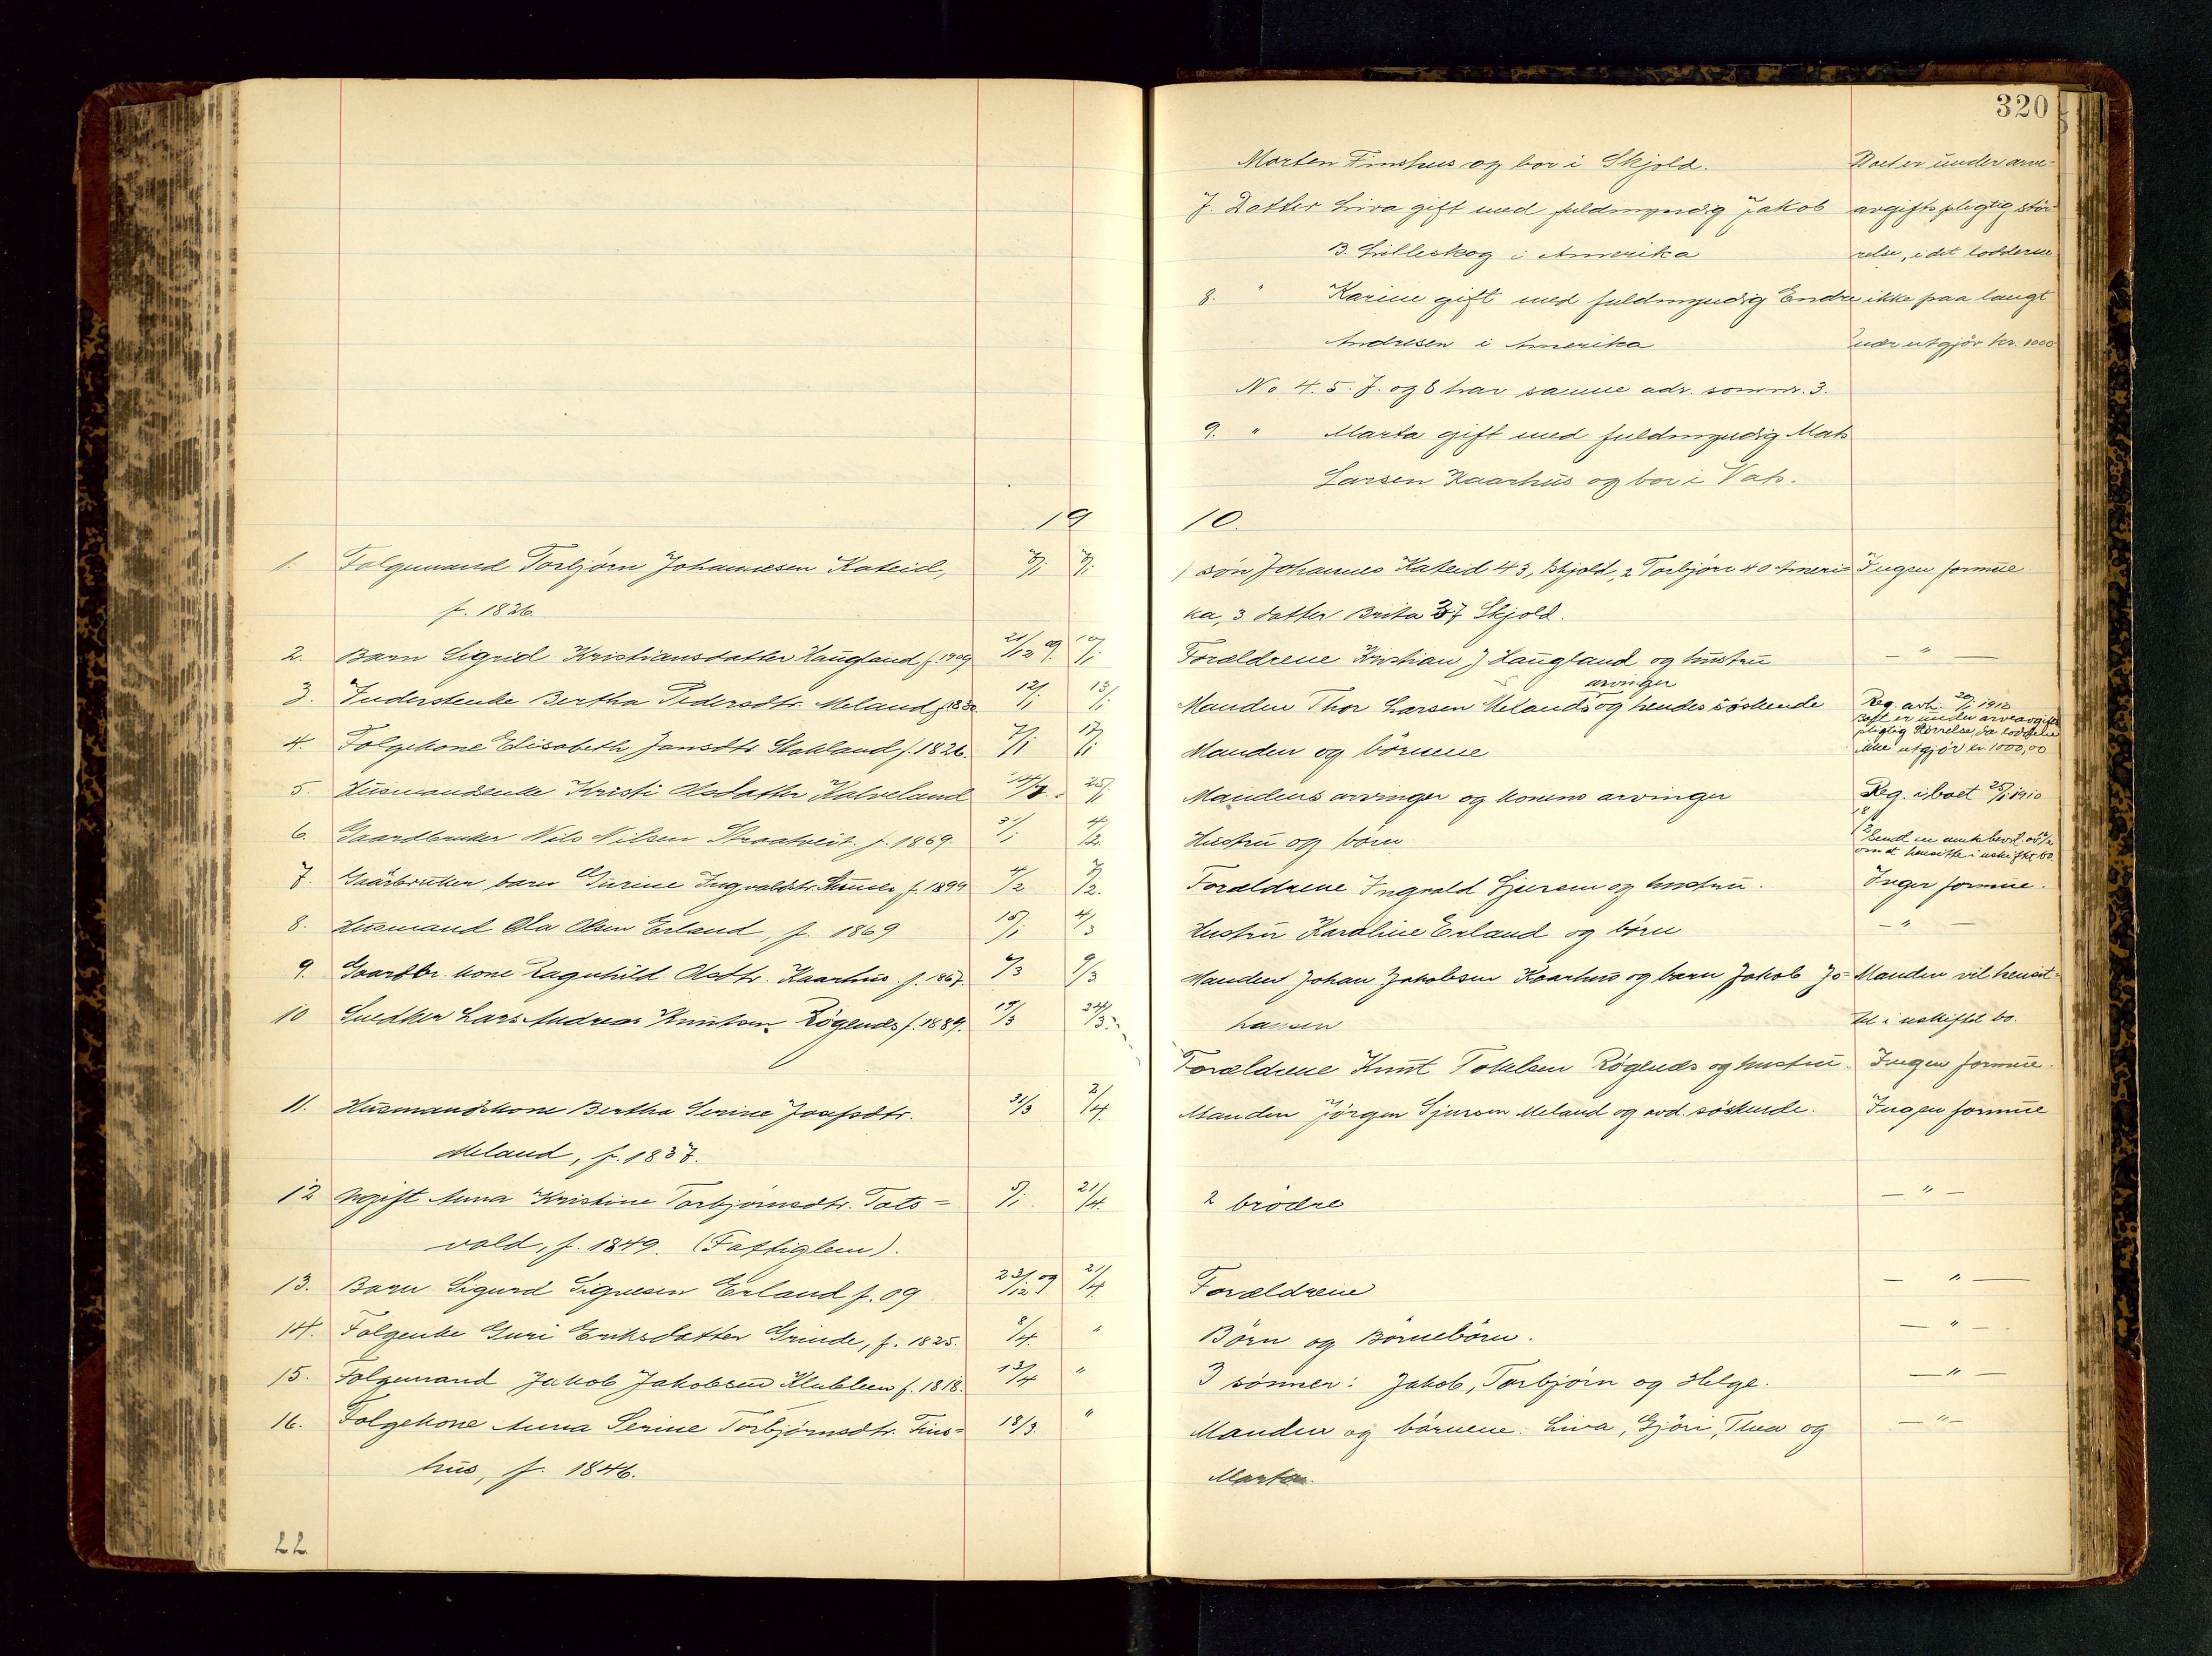 320
Morten Finshus og bor i Skjold. Boet er under arve-
7. Datter Liva gift med fuldmyndig Jakob avgiftspligtig stör-
B. Lilleskog i Amerika relse, i det lodderne
8. " Karine gift med fuldmyndig Endre ikke paa langt
Andresen i Amerika nær utgjör kr. 1000
No 4. 5. 7. og 8 har samme adr. som nr. 3.
9. " Marta gift med fuldmyndig Mats
Larsen Kaarhus og bor i Vats.
19 10.
1. Folgemand Torbjörn Johannesen Kateid, 3/1 7/1 1 sön Johannes Kateid 43, Skjold, 2 Torbjörn 40 Ameri= Ingen formue
f. 1826. ka, 3 datter Brita 37 Skjold.
2. Barn Sigrid Kristiansdatter Haugland f. 1909 21/12 09. 10/1 Forældrene Kristian J Haugland og hustru — " —
arvinger
3. Inderstenke Bertha Pedersdtr. Meland f. 1832 12/1 13/1 Manden Thor Larsen Melands og hendes söskende Reg. avh. 20/1 1912
4. Folgekone Elisabeth Jansdtr. Stakland f. 1826. 7/1 17/1 Manden og börnene Boet er under arveavgifts
pligtig störrelse, da lodderne
ikke utgjör kr 1000,00
5. Husmandsenke Kristi Olsdatter Kalveland 14/1 25/1 Mandens arvinger og konens arvinger Reg. i boet 25/1 1910
6. Gaardbruker Nils Nilsen Straatveit. f. 1869. 31/1 4/2. Hustru og börn
om at hensitte i uskiftet bo.
7. Gaarbruker barn Gurine Ingvaldsdtr. f. 1899 4/2 7/2. Forældrene Ingvald Sjursen og hustru. Ingen formue.
8. Husmand Ola Olsen Erland, f. 1869 15/1 4/3 Hustru Karoline Erland og börn — " —
9. Gaardbr. kone Ragnhild Olsdtr. Kaarhus. f. 1867. 7/3 9/3 Manden Johan Jakobsen Kaarhus og barn Jakob Jo= Manden vil hensit=
10 Snedker Lars Andreas Knutsen Rögends f. 1889. 19/3 24/3. hansen te i uskiftet bo.
Forældrene Knut Tokelsen Rögends og hustru Ingen formue.
11. Husmandskone Bertha Serine Josefsdtr. 31/3 2/4. Manden Jörgen Sjursen Meland og avd. söskende. Ingen formue
Meland, f. 1837.
12 Ugift Anna Kristine Torbjörnsdtr. Tots= 5/1 21/4. 2 brödre — " —
vold, f. 1849. (Fattiglem).
13. Barn Sigurd Signesen Erland f. 09 23/12 09 21/4. Forældrene — " —
14. Folgenke Guri Eriksdatter Grinde, f. 1825. 8/4. " Börn og Börnebörn. — " —
15. Folgemand Jakob Jakobsen Klubben f. 1818. 13/4 " 3 sönner: Jakob, Torbjörn og Helge. — " —
16. Folgekone Anna Serine Torbjörnsdtr. Fins= 18/3. " Manden og börnene. Liva, Gjöri, Thea og — " —
hus, f. 1846. Marta.
22